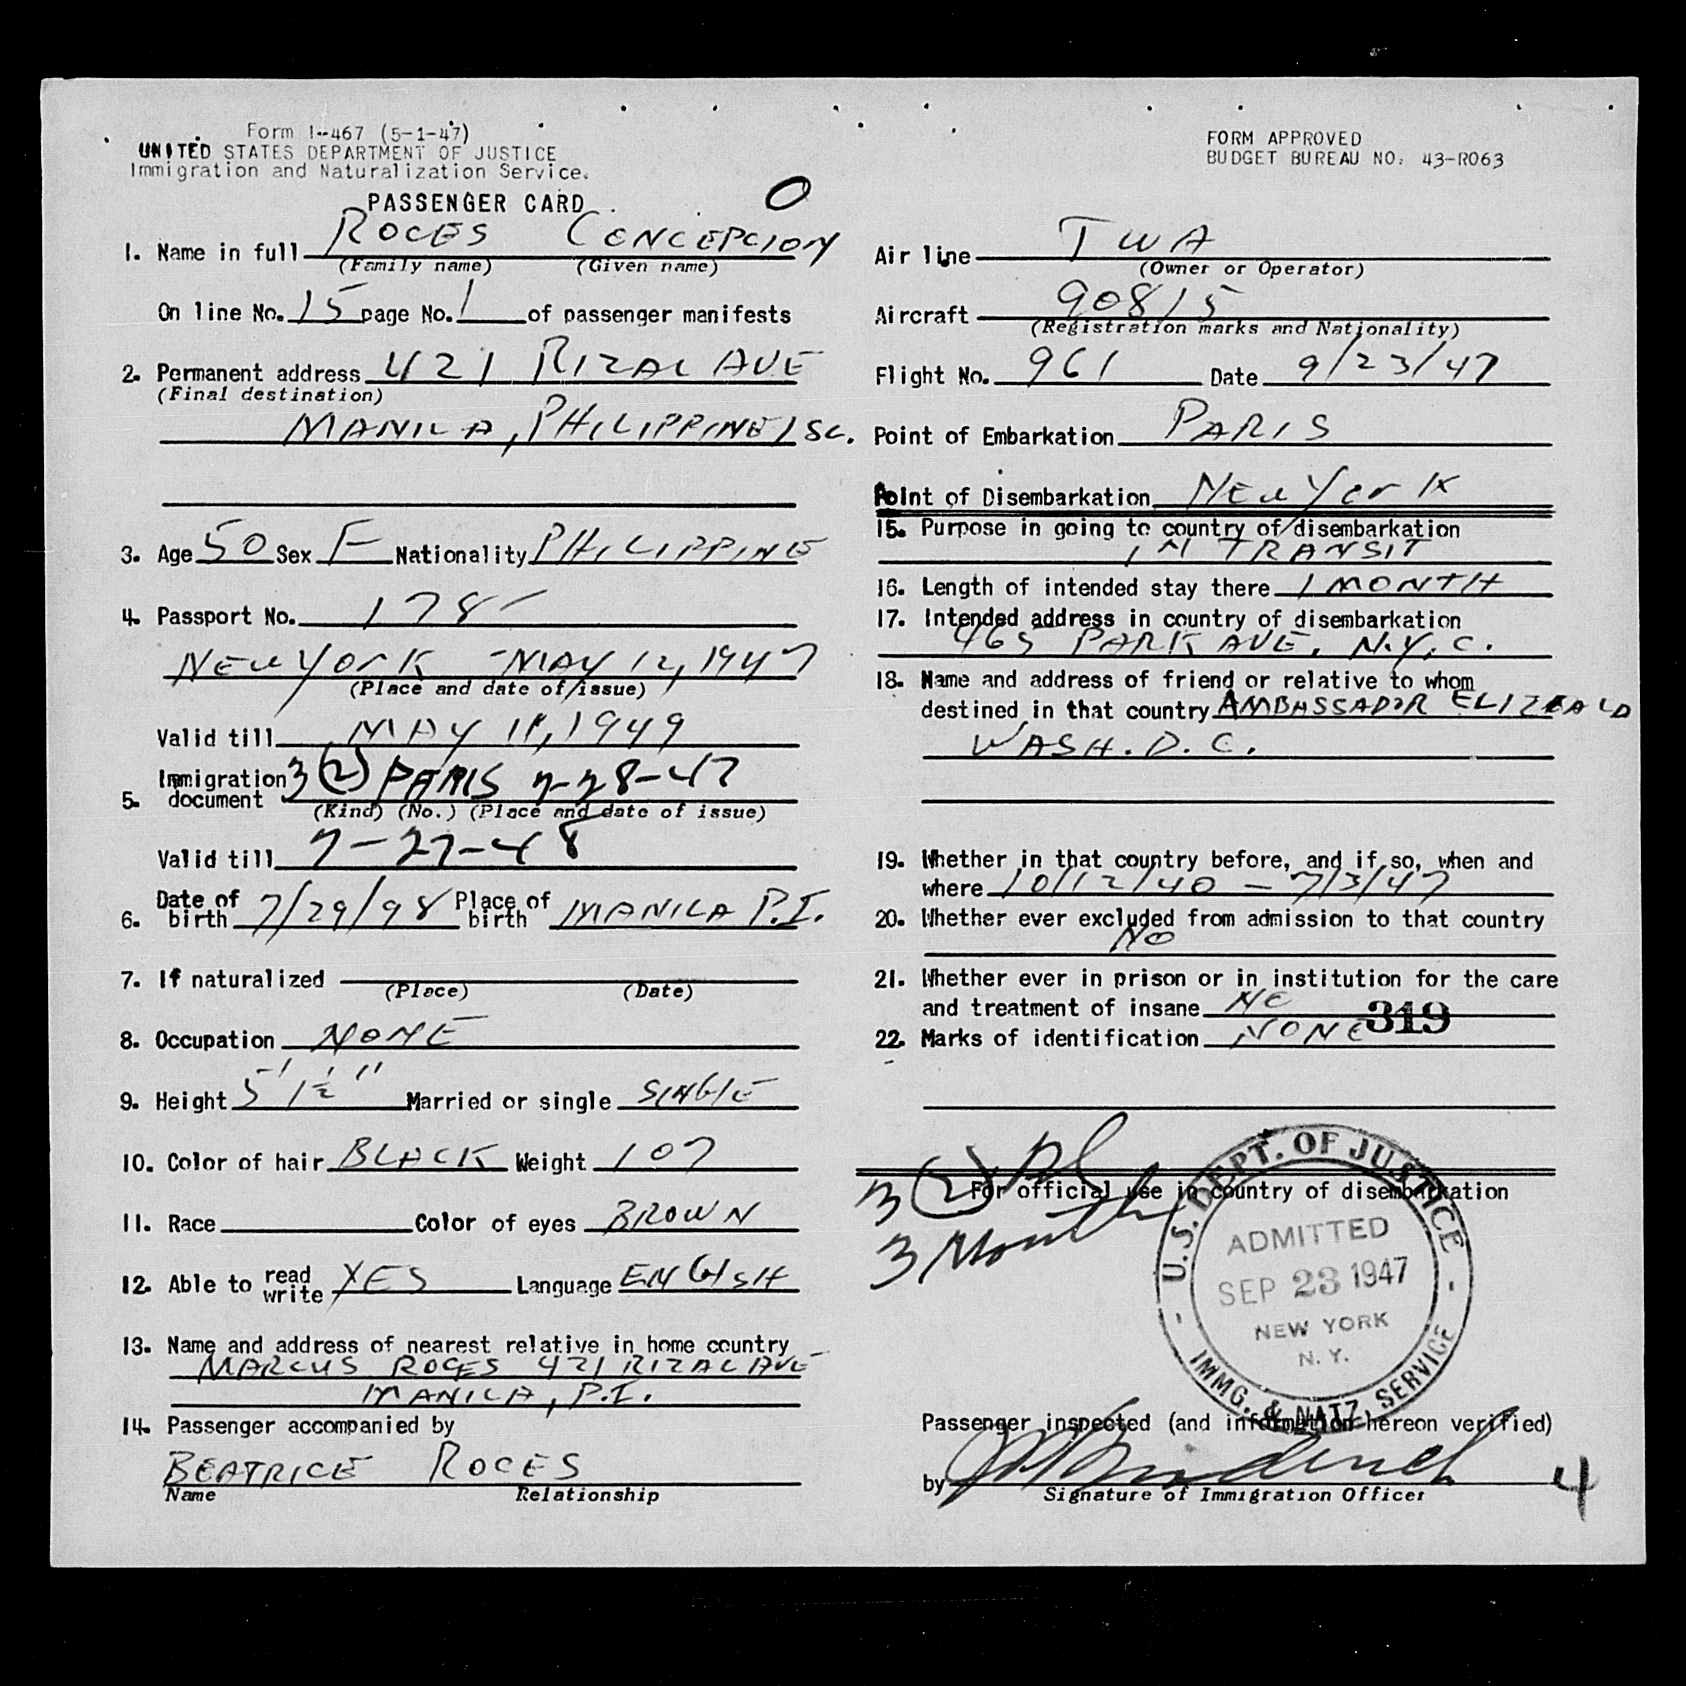 Form I-467 (5-1-47)
UNITED STATES DEPARTMENT OF JUSTICE
Immigration and Naturalization Service.
PASSENGER CARD
O
1. Name in full ROCES CONCEPCION
(Family name) (Given name)
On line No. 15 page No. 1 of passenger manifests
2. Permanent address 421 RIZAL AVE
(Final destination)
MANILA, PHILIPPINE ISL.
3. Age 50 Sex F Nationality PHILIPPINE
4. Passport No. 178
NEW YORK - MAY 12, 1947
(Place and date of issue)
Valid till MAY 11, 1949
5. Immigration document 3 (2) PARIS 7-28-47
(Kind) (No.) (Place and date of issue)
Valid till 7-27-48
6. Date of birth 7/29/98 Place of birth MANILA P.I.
7. If naturalized
(Place) (Date)
8. Occupation NONE
9. Height 5' 1½" Married or single SINGLE
10. Color of hair BLACK Weight 107
11. Race Color of eyes BROWN
12. Able to read write YES Language ENGLISH
13. Name and address of nearest relative in home country
MARCUS ROCES 421 RIZAL AVE
MANILA, P.I.
14. Passenger accompanied by
BEATRICE ROCES
Name Relationship
FORM APPROVED
BUDGET BUREAU NO. 43-R063
Air line TWA
(Owner or Operator)
Aircraft 90815
(Registration marks and Nationality)
Flight No. 961 Date 9/23/47
Point of Embarkation PARIS
Point of Disembarkation NEW YORK
15. Purpose in going to country of disembarkation
IN TRANSIT
16. Length of intended stay there 1 MONTH
17. Intended address in country of disembarkation
465 PARK AVE. N.Y.C.
18. Name and address of friend or relative to whom
destined in that country AMBASSADOR ELIZEALD
WASH. D.C.
19. Whether in that country before, and if so, when and
where 10/12/40 - 7/3/47
20. Whether ever excluded from admission to that country
NO
21. Whether ever in prison or in institution for the care
and treatment of insane NO
319
22. Marks of identification NONE
3 (2)
For official use in country of disembarkation
3 Months
U.S. DEPT. OF JUSTICE
ADMITTED
SEP 23 1947
NEW YORK
N. Y.
IMMG. & NATZ. SERVICE
Passenger inspected (and information hereon verified)
by
Signature of Immigration Officer
4